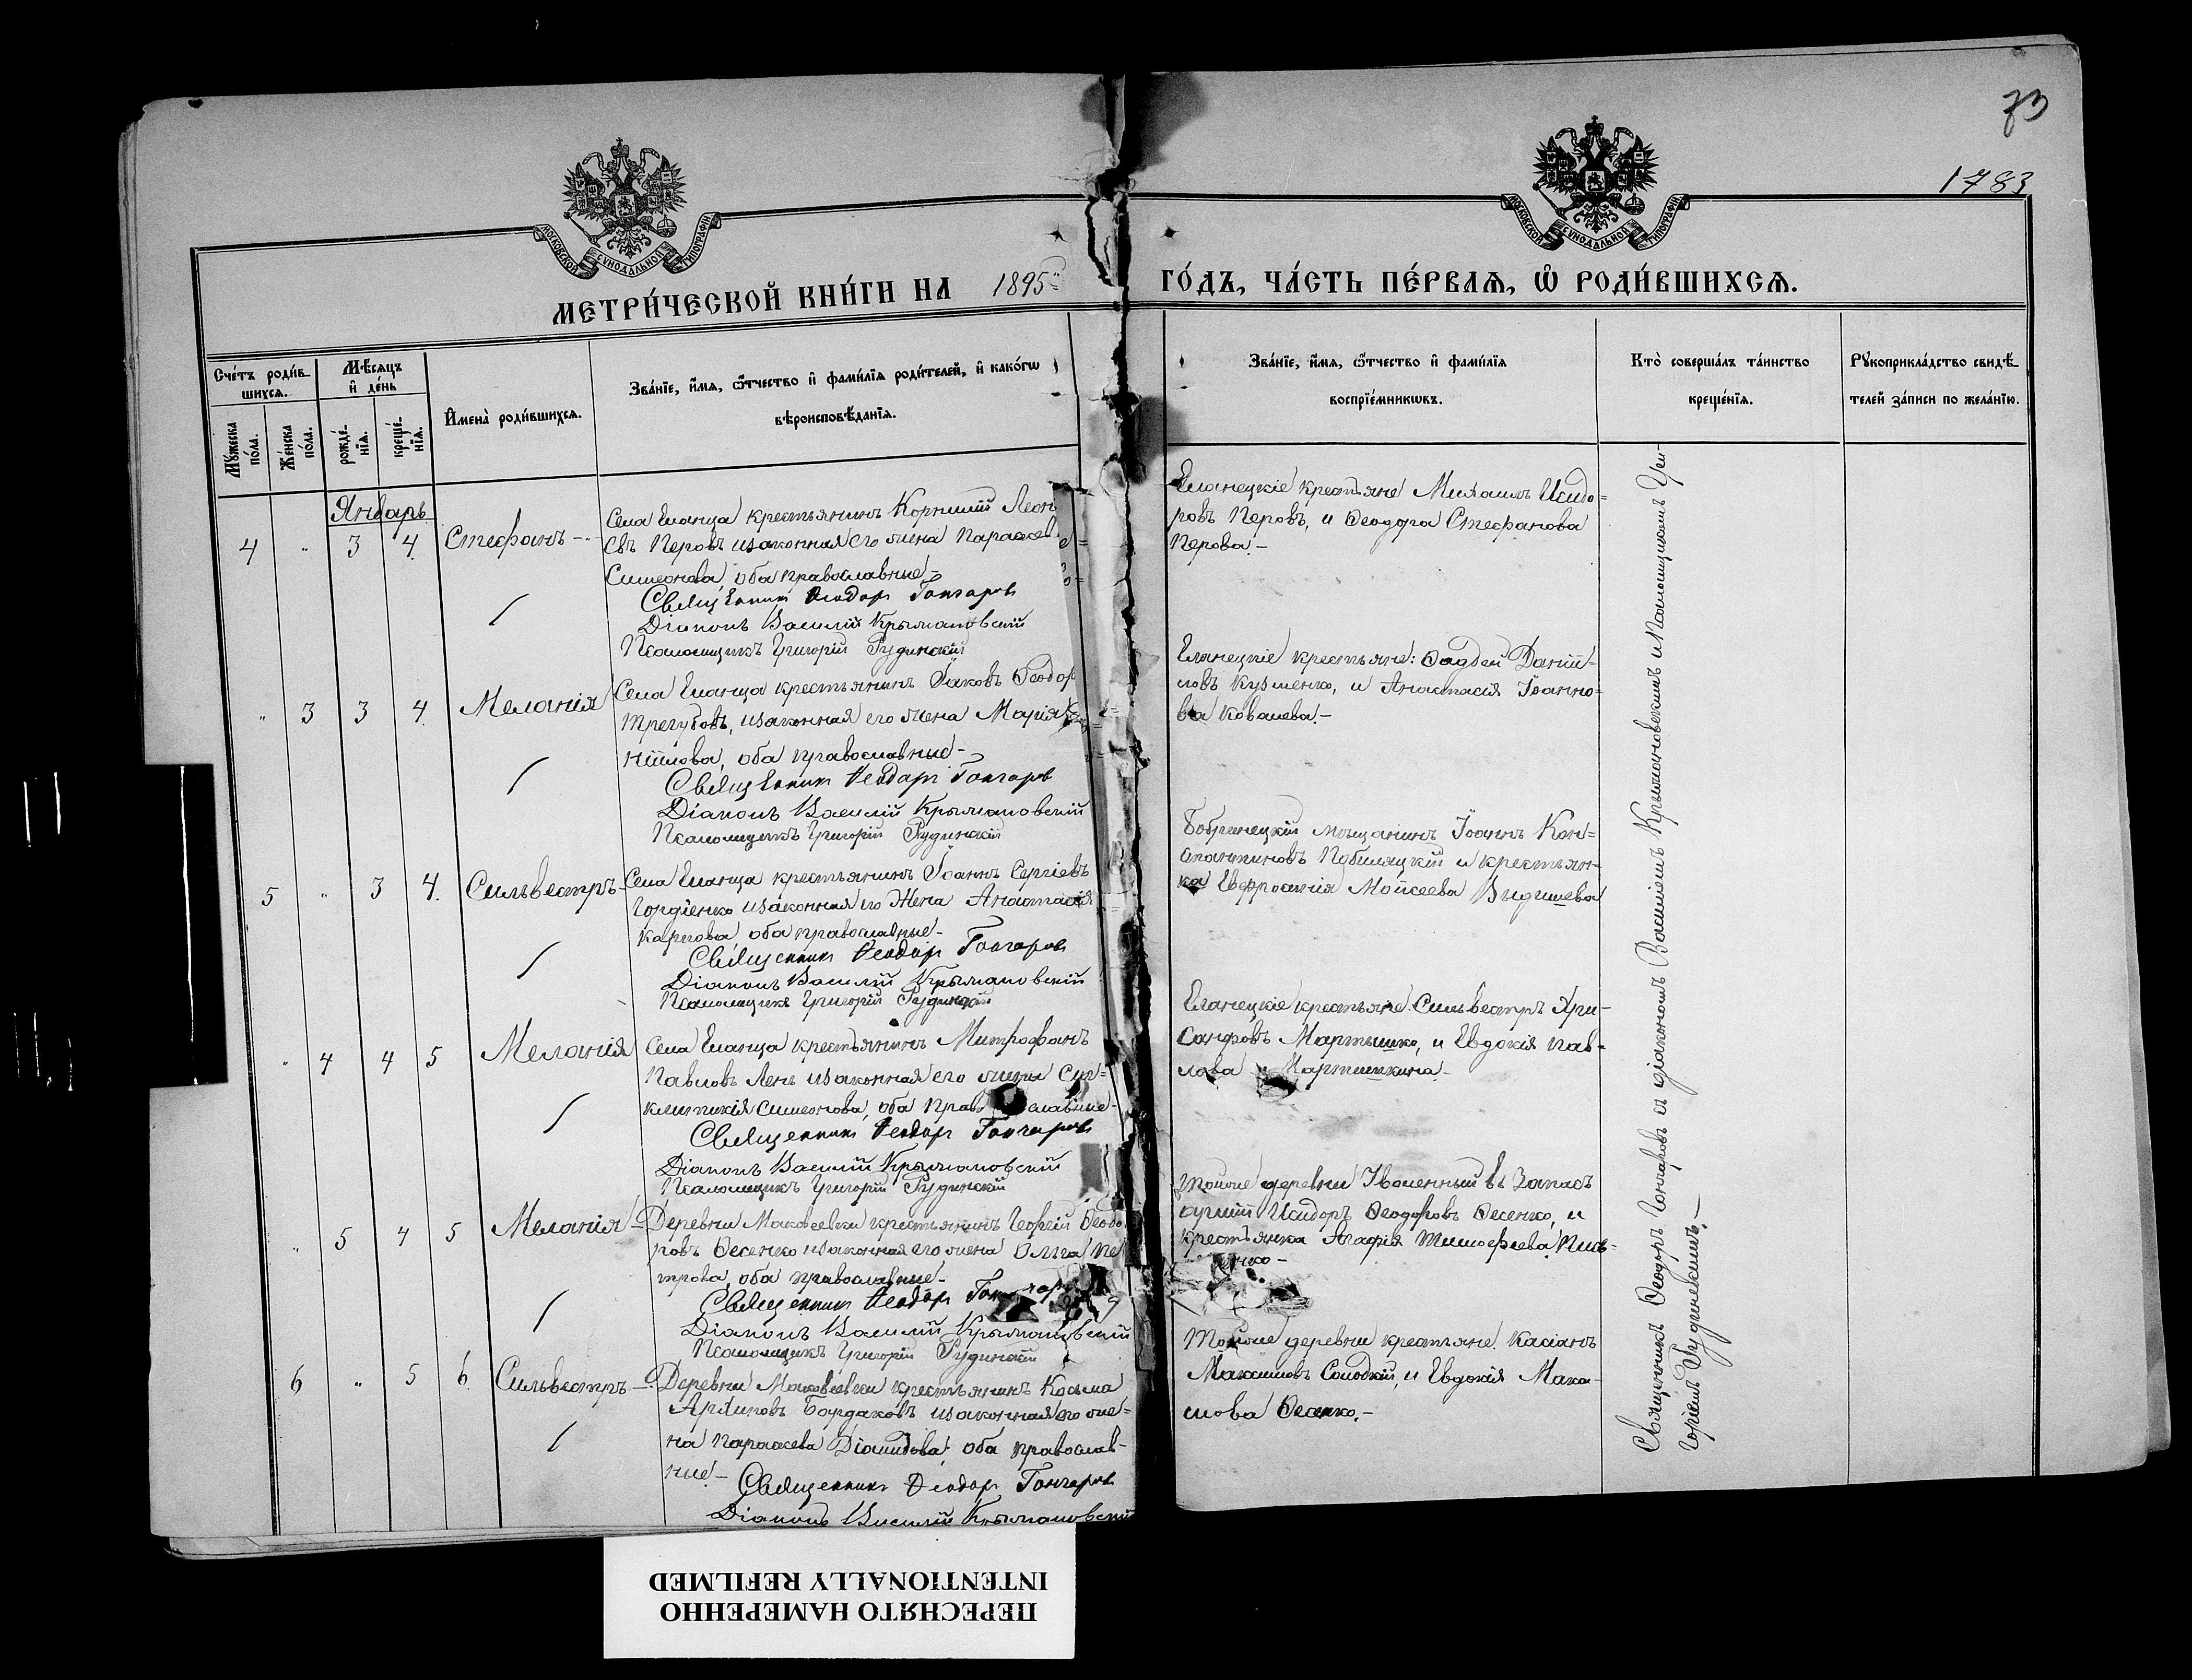 73
1783
МОСКОВСКОЙ СѴНОДАЛЬНОЙ ТИПОГРАФІИ
МОСКОВСКОЙ СѴНОДАЛЬНОЙ ТИПОГРАФІИ
МЕТРИ́ЧЕСКОЙ КНИ́ГИ НА 1895й ГО́ДЪ, ЧА́СТЬ ПЕ́РВАѦ, Ѽ РОДИ́ВШИХСѦ.
Сче́тъ роди́в-
шихсѧ.
Мꙋ́жеска по́ла.
Же́нска по́ла.
Мѣ́сяцъ
и҆ де́нь
рожде́-
нїѧ.
креще́-
нїѧ.
И҆мена̀ роди́вшихсѧ.
Зва́нїе, и҆́мѧ, ѻ҆́тчество и҆ фами́лїѧ роди́телей, и҆ како́гѡ
вѣроисповѣ́данїѧ.
Зва́нїе, и҆́мѧ, ѻ҆́тчество и҆ фами́лїѧ
воспрїе́мникѡвъ.
Кто̀ соверша́лъ та́инство
креще́нїѧ.
Рꙋкоприкла́дство свидѣ́-
телей за́писи по жела́нїю.
Январь
4 " 3 4. Стефанъ
Села Еланца крестьянинъ Корнилій Леон
евъ Перовъ и законная его жена Параскев
Симеонова, оба православные-
Священникъ Ѳеодоръ Гончаровъ
Діаконъ Василій Крыжановскій
Псаломщикъ Григорій Рудинскій
Еланецкіе крестьяне Михаилъ Исидо=
ровъ Перовъ, и Ѳеодора Стефанова
Перова.-
" 3 3 4. Меланія
Села Еланца крестьянинъ Іаковъ Ѳеодор
Трегубовъ, и законная его жена Марія
ніилова, оба православные-
Священникъ Ѳеодоръ Гончаровъ
Діаконъ Василій Крыжановскій
Псаломщикъ Григорій Рудинскій
Еланецкіе крестьяне: Ѳаддей Даніи-
ловъ Кузменко, и Анастасія Іоанно-
ва Ковалева.-
5 " 3 4. Сильвестръ-
Села Еланца крестьянинъ Іоаннъ Сергіевъ
Гордіенко и законная его жена Анастасія
Карпова, оба православные-
Священникъ Ѳеодоръ Гончаровъ
Діаконъ Василій Крыжановскій
Псаломщикъ Григорій Рудинскій
Бобринецкій мѣщанинъ Іоаннъ Кон=
стантиновъ и крестьян-
ка Евфросинія Мойсеева
" 4 4 5 Меланія
Села Еланца крестьянинъ Митрофанъ
Павловъ Лень и законная его жена Син=
клитикія Симеонова, оба православные-
Священникъ Ѳеодоръ Гончаровъ
Діаконъ Василій Крыжановскій
Псаломщикъ Григорій Рудинскій
Еланецкіе крестьяне Сильвестръ Хри-
санфовъ Мартышко, и Евдокія Пав-
лова Мартышкина.
" 5 4 5 Меланія-
Деревни Маковеевки крестьянинъ Георгій Ѳеодо
ровъ Ѳесенко и законная его жена Ольга Пе
трова, оба православные-
Священникъ Ѳеодоръ Гончаровъ
Діаконъ Василій Крыжановскій
Псаломщикъ Григорій Рудинскій
Тойже деревни Уволенный въ Запасъ
арміи Исидоръ Ѳеодоровъ Ѳесенко, и
крестьянка Агафія Тимофеева
6 " 5 6. Сильвестръ-
Деревни Маковеевки крестьянинъ Косьма
Архиповъ Бардаковъ и законная его же=
на Параскева Діомидова, оба православ-
ные.-
Священникъ Ѳеодоръ Гончаровъ
Діаконъ Василій Крыжановскій
Тойже деревни крестьяне Касіанъ
Максимовъ Солодкій, и Евдокія Макси-
мова Ѳесенко.-
Священникъ Ѳеодоръ Гончаровъ съ діакономъ Василіемъ Крыжановскимъ и Псаломщикомъ Гри-
горіемъ Рудинскимъ.-
ПЕРЕСНЯТО НАМЕРЕННО
INTENTIONALLY REFILMED